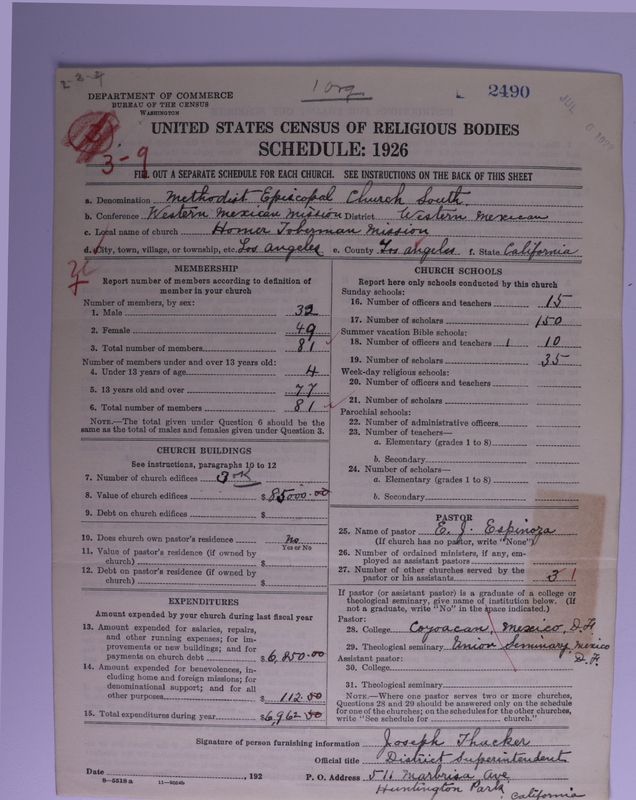 2-3-4
1 org
2490
DEPARTMENT OF COMMERCE
BUREAU OF THE CENSUS
WASHINGTON
3-9
UNITED STATES CENSUS OF RELIGIOUS BODIES
SCHEDULE: 1926
FILL OUT A SEPARATE SCHEDULE FOR EACH CHURCH. SEE INSTRUCTIONS ON THE BACK OF THIS SHEET
a. Denomination Methodist Episcopal Church South
b. Conference Western Mexican Mission District Western Mexican
c. Local name of church Homer Toberman Mission
d. City, town, village, or township, etc. Los Angeles e. County Los Angeles f. State California
MEMBERSHIP
Report number of members according to definition of
member in your church
Number of members, by sex:
1. Male 32
2. Female 49
3. Total number of members 81
Number of members under and over 13 years old:
4. Under 13 years of age 4
5. 13 years old and over 77
6. Total number of members 81
NOTE.—The total given under Question 6 should be
same as the total of males and females given under Question 3.
CHURCH BUILDINGS
See instructions, paragraphs 10 to 12
7. Number of church edifices 3 OK
8. Value of church edifices $85000.00
9. Debt on church edifices $
10. Does church own pastor's residence No
Yes or No
11. Value of pastor's residence (if owned by
church) $
12. Debt on pastor's residence (if owned by
church) $
EXPENDITURES
Amount expended by church during last fiscal year
13. Amount expended for salaries, repairs,
and other running expenses; for im-
provements or new buildings; and for
payments on church debt $6,850.00
14. Amount expended for benevolences, in-
cluding home and foreign missions; for
denominational support; and for all
other purposes 112.00
15. Total expenditures during year $6,962.00
CHURCH SCHOOLS
Report here only schools conducted by this church
Sunday schools:
16. Number of officers and teachers 15
17. Number of scholars 150
Summer vacation Bible schools:
18. Number of officers and teachers 1 10
19. Number of scholars 35
Week-day religious schools:
20. Number of officers and teachers
21. Number of scholars
Parochial schools:
22. Number of administrative officers
23. Number of teachers—
a. Elementary (grades 1 to 8)
b. Secondary
24. Number of scholars—
a. Elementary (grades 1 to 8)
b. Secondary
PASTOR
25. Name of pastor E. J. Espinoza
(If church has no pastor, write "None")
26. Number of ordained ministers, if any, em-
ployed as assistant pastors
27. Number of other churches served by the
pastor or his assistants 3 1
If pastor (or assistant pastor) is a graduate of a college or
theological seminary, give name of institution below. (If
not a graduate, write "No" in the space indicated.)
Pastor:
28. College Coyoacan, Mexico, D.F.
29. Theological seminary Union Seminary, Mexico
D.F.
Assistant pastor:
30. College
31. Theological seminary
NOTE.—Where one pastor serves two or more churches,
Questions 28 and 29 should be answered only on the schedule
for one of the churches; on the schedules for the other churches,
write "See schedule for church."
Signature of person furnishing information Joseph Thacker
Official title District Superintendent
Date , 192 P. O. Address 511 Marbrisa Ave.
Huntington Park,
California
8-5518 a